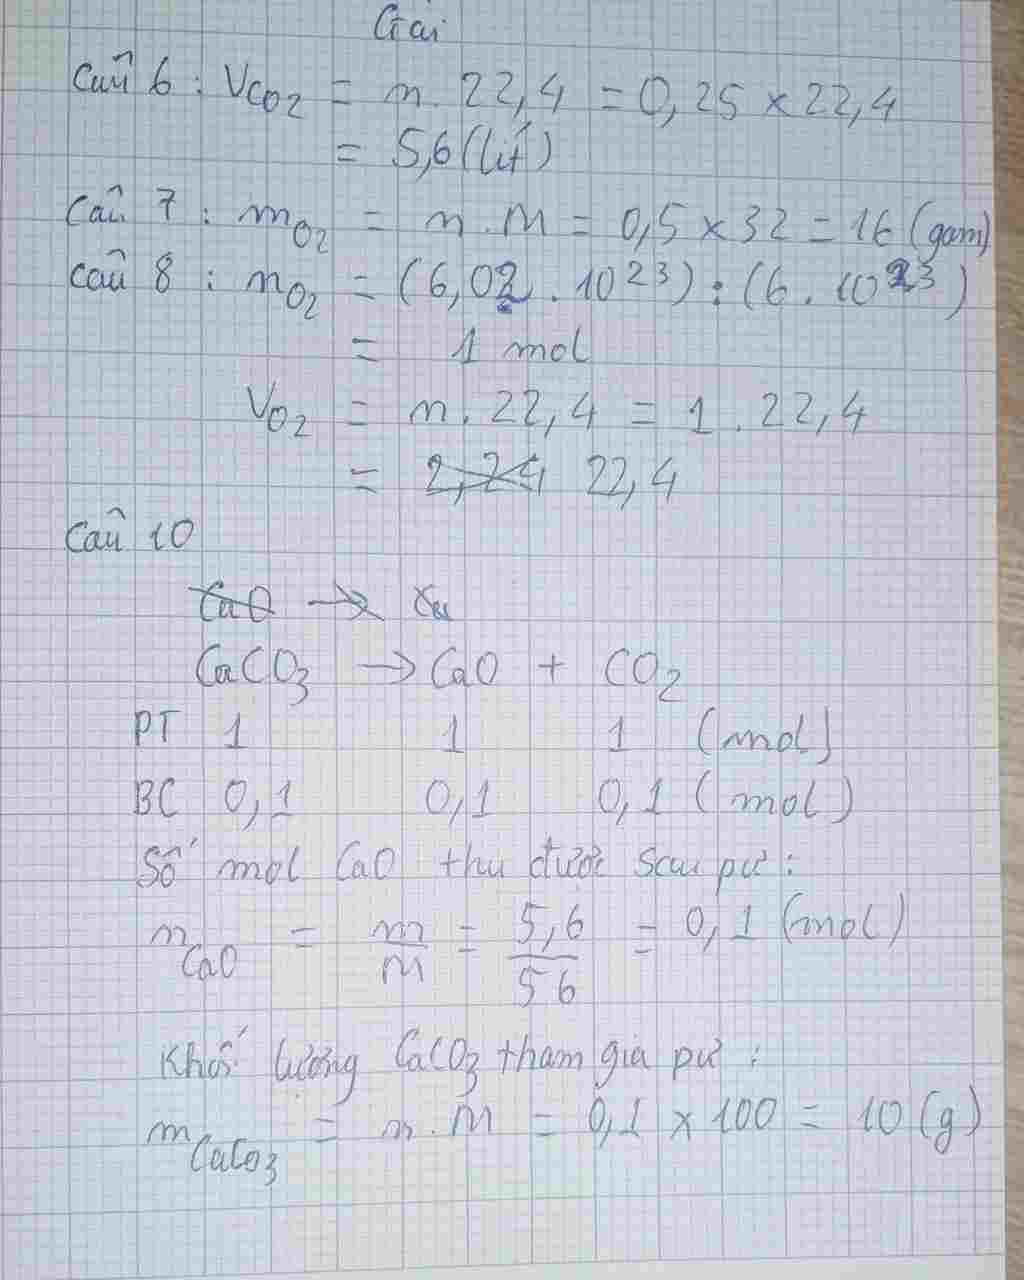 Giải
Câu 6 : VCO2 = n. 22,4 = 0,25 x 22,4
= 5,6 (lít)
Câu 7 : mO2 = n . M = 0,5 x 32 = 16 (gam)
Câu 8 : nO2 = (6,02 . 10^23) : (6 . 10^23)
= 1 mol
VO2 = n. 22,4 = 1 . 22,4
= 2,24 22,4
Câu 10
CaO →
CaCO3 → CaO + CO2
PT 1 1 1 (mol)
BC 0,1 0,1 0,1 (mol)
Số mol CaO thu được sau pư :
nCaO = m/M = 5,6/56 = 0,1 (mol)
Khối lượng CaCO3 tham gia pư :
mCaCO3 = n . M = 0,1 x 100 = 10 (g)